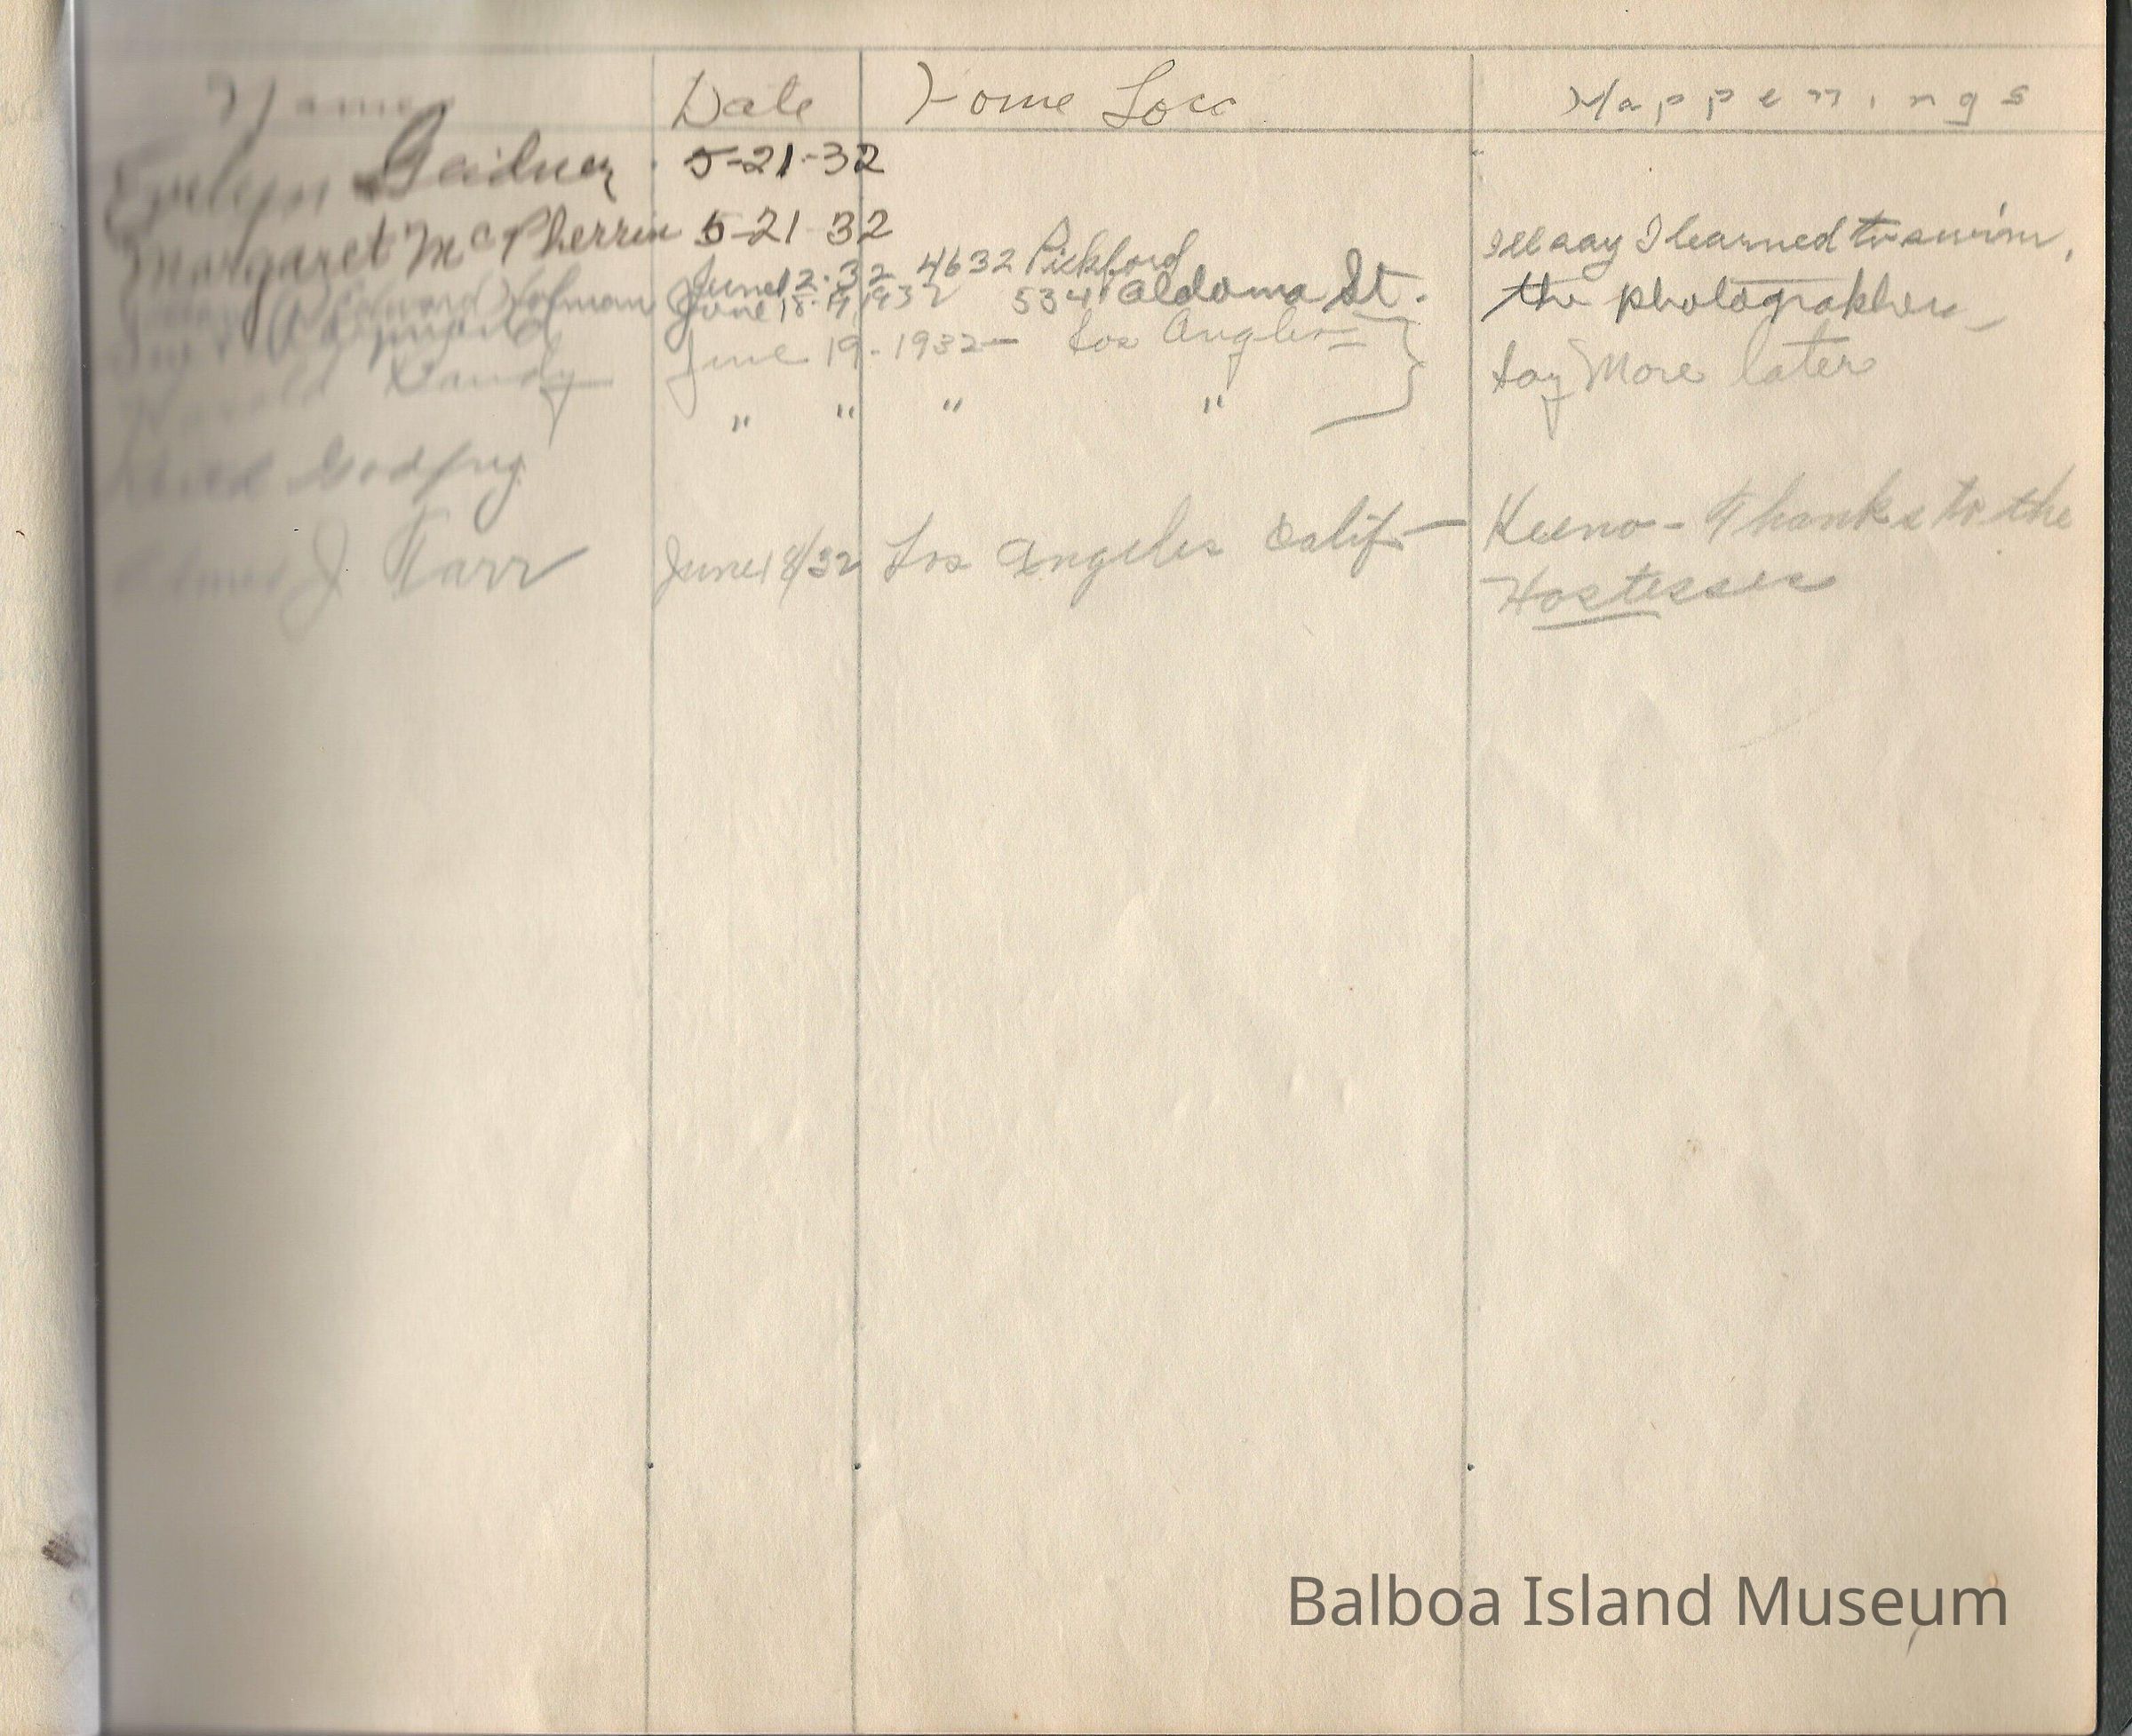 Name Date Home Loca Happenings
Evelyn Geidner 5-21-32
Margaret McPherrin 5-21-32 I'll say I learned to swim,
Edward Hofman June 12-32 4632 Pickford
June 18-19, 1932 5341 Aldama St. the photographer
June 19-1932- Los Angeles
Harold Dandy Say More later
" " " "
Godfrey
Elmer J Farr June 18/32 Los Angeles Calif- Keeno- Thanks to the
Hostesses
Balboa Island Museum